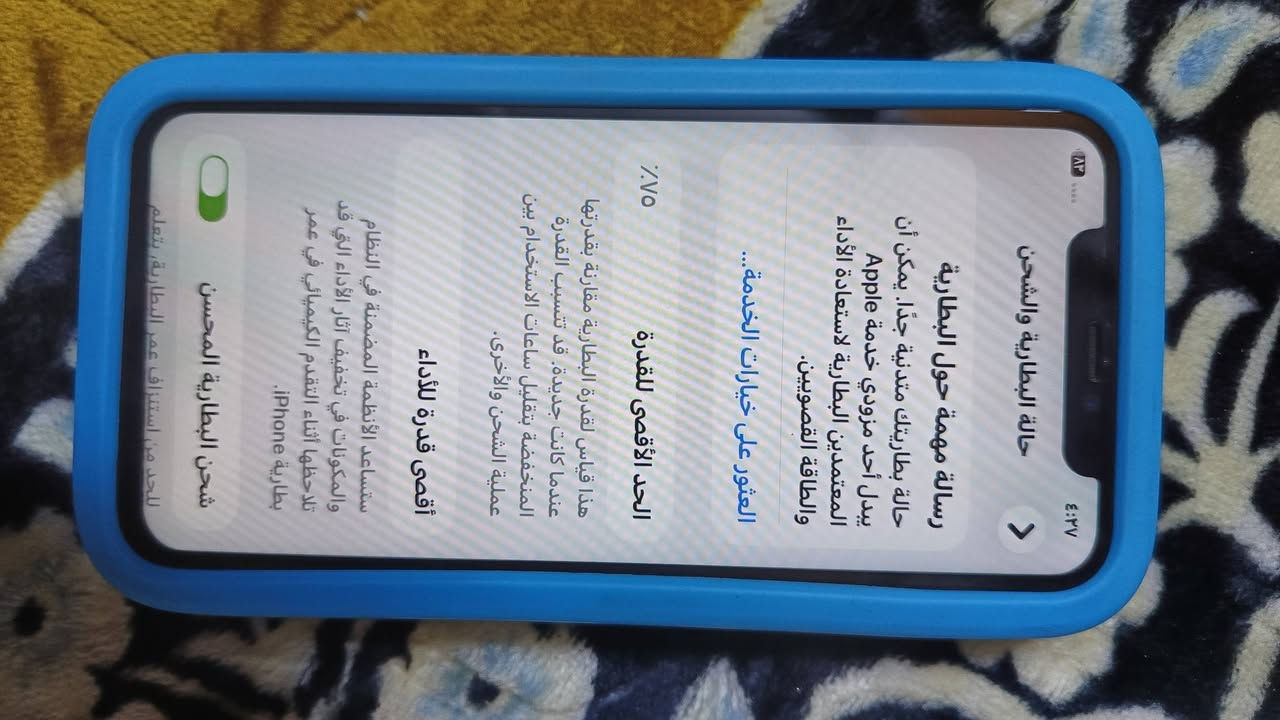 ٤:٢٧
٨٣
حالة البطارية والشحن
رسالة مهمة حول البطارية
حالة بطاريتك متدنية جدًا. يمكن أن
يبدل أحد مزودي خدمة Apple
المعتمدين البطارية لاستعادة الأداء
والطاقة القصويين.
العثور على خيارات الخدمة...
الحد الأقصى للقدرة ٧٥٪
هذا قياس لقدرة البطارية مقارنة بقدرتها
عندما كانت جديدة. قد تتسبب القدرة
المنخفضة بتقليل ساعات الاستخدام بين
عملية الشحن والأخرى.
أقصى قدرة للأداء
ستساعد الأنظمة المضمنة في النظام
والمكونات في تخفيف آثار الأداء التي قد
تلاحظها أثناء التقدم الكيميائي في عمر
بطارية iPhone.
شحن البطارية المحسن
للحد من استنزاف عمر البطارية، يتعلم